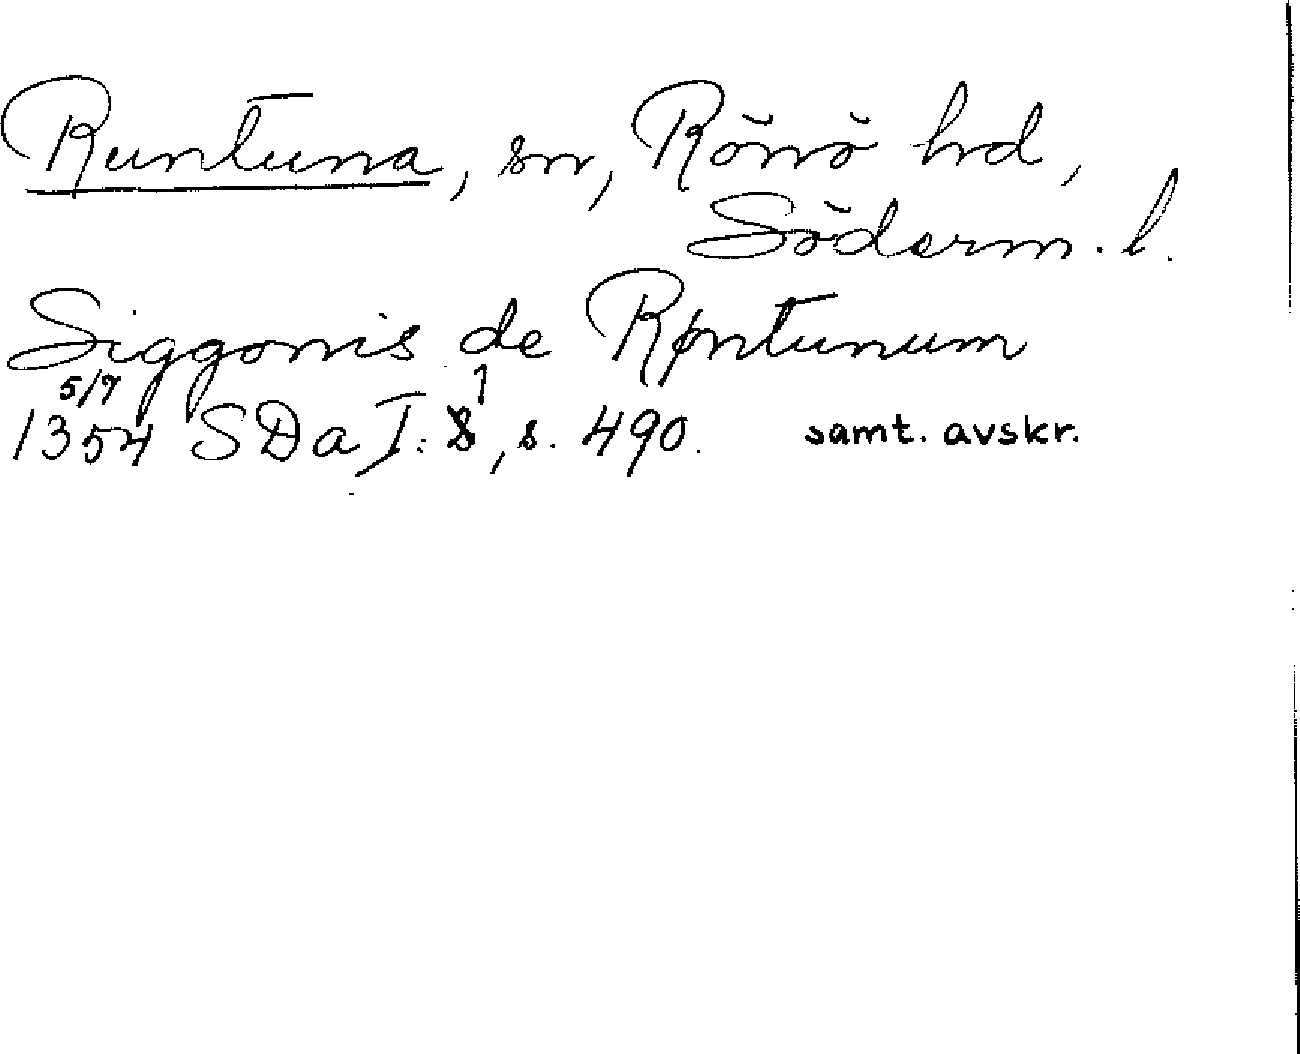 Runtuna, sn, Rönö hrd,
Söderm. l.
Siggonis de Røntunum
5/7 1
1354 SDa I: 8, s. 490. samt. avskr.